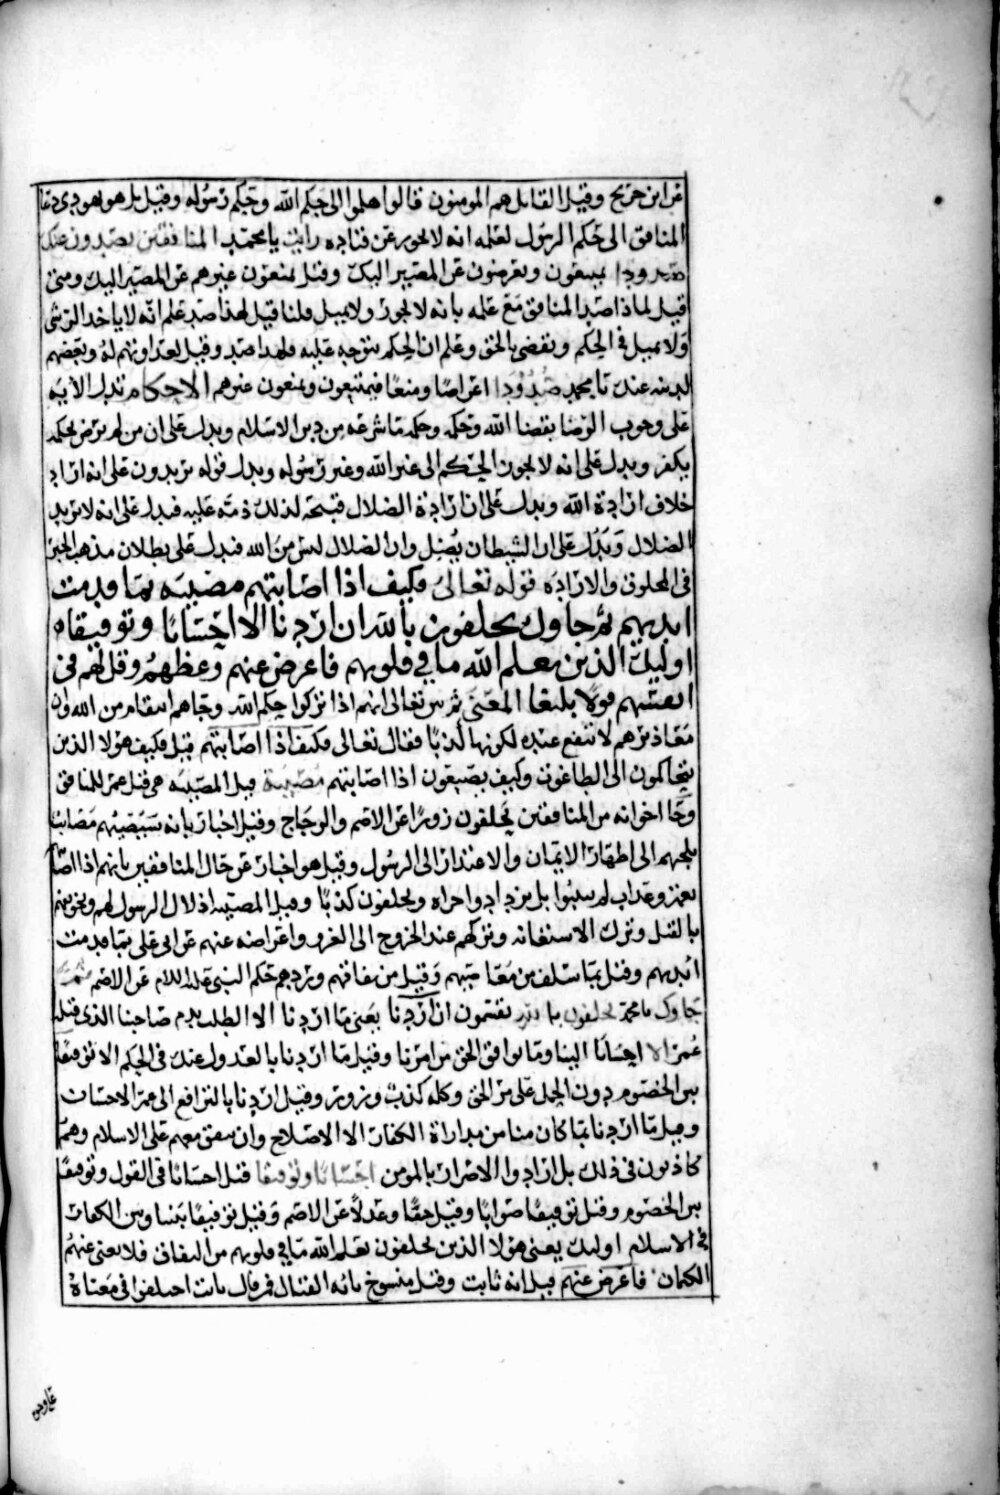 عن ابن جريج وقيل القايل هم المومنون قالوا هلموا الى حكم الله وحكم رسوله وقيل بل هو يهودي دعا
المنافق الى حكم الرسول لعلمه انه لا يجور عن قتاده رايت يا محمد المنافقين يصدون عنك
صدودا يمنعون ويعرضون عن المصير اليك وقيل يمنعون غيرهم عن المصير اليك ومتى
قيل لماذا صد المنافق مع علمه بانه لا يجور ولا يميل قلنا قيل لهذا صد علم انه لا ياخذ الرشى
ولا يميل في الحكم ويقضي بالحق وعلم ان الحكم يتوجه عليه فلهذا صد وقيل لعداوتهم له وبغضهم
لدينه عنك يا محمد صدودا اعراضا ومنعا فيمتنعون ويمنعون غيرهم الاحكام تدل الايه
على وجوب الرضا بقضا الله وحكمه وحكمه ما شرعه من دين الاسلام ويدل على ان من لم يرض بحكمه
يكفر ويدل على انه لا يجوز التحكم الى غير الله وغير رسوله ويدل قوله يريدون على انه اراد
خلاف ارادة الله ويدل على ان ارادة الضلال قبيحة لذلك ذمه عليه فيدل على انه لا يريد
الضلال ويدل على ان الشيطان يضل وان الضلال ليس من الله فيدل على بطلان مذهب الجبر
في المخلوق والاراده قوله تعالى فكيف اذا اصابتهم مصيبه بما قدمت
ايديهم ثم جاوك يحلفون بالله ان اردنا الا احسانا وتوفيقا ه
اوليك الذين يعلم الله ما في قلوبهم فاعرض عنهم وعظهم وقل لهم في
انفسهم قولا بليغا المعنى ثم بين تعالى انهم اذا تركوا حكم الله وجاهم انتقام من الله وان
معاذيرهم لا تنفع عنده لكونها كذبا فقال تعالى فكيف اذا اصابتهم قيل فكيف هولا الذين
يتحاكمون الى الطاغوت وكيف يصنعون اذا اصابتهم مصيبة قيل المصيبه هي قتل عمر للمنافق
وجا اخوانه من المنافقين يحلفون زورا عن الاصم والزجاج وقيل اخبار بانه سيصيبهم مصايب
يلجهم الى اظهار الايمان والاعتذار الى الرسول وقيل هو اخبار عن حال المنافقين بانهم اذا اصا
وعذاب لم يتوبوا بل يزدادوا جراه ويحلفون كذبا وقيل المصيبه اذلال الرسول لهم وتخويفهم
بالقتل وترك الاستغاثه وتركهم عند الخروج الى الغزو واعراضه عنهم عن ابي علي بما قدمت
ايديهم وقيل بما سلف من معاصيهم وقيل من نفاقهم وردهم حكم النبي عليه السلام عن الاصم ثم
جاوك يا محمد يحلفون بالله يقسمون ان اردنا يعني ما اردنا الا الطلب بدم صاحبنا الذي قتله
عمر الا احسانا الينا وما يوافق الحق من امرنا وقيل ما اردنا بالعدول عنك في الحكم الا توفيقا
بين الخصوم دون الحمل على مر الحق وكله كذب وزور وقيل اردنا بالترافع الى عمر الاحسان
وقيل ما اردنا بما كان منا من مداراة الكفار الا الاصلاح وان معهم على الاسلام وهم
كاذبون في ذلك بل ارادوا الاضرار بالمومن احسانا وتوفيقا قيل احسانا في القول وتوفيقا
بين الخصوم وقيل توفيقا صوابا وقيل حقا وعدلا عن الاصم وقيل توفيقا بيننا وبين الكفار
في الاسلام اوليك يعني هولا الذين يحلفون يعلم الله ما في قلوبهم من النفاق فلا يغني عنهم
الكتمان فاعرض عنهم قيل انه ثابت وقيل منسوخ بايه القتال اختلفوا في معناه